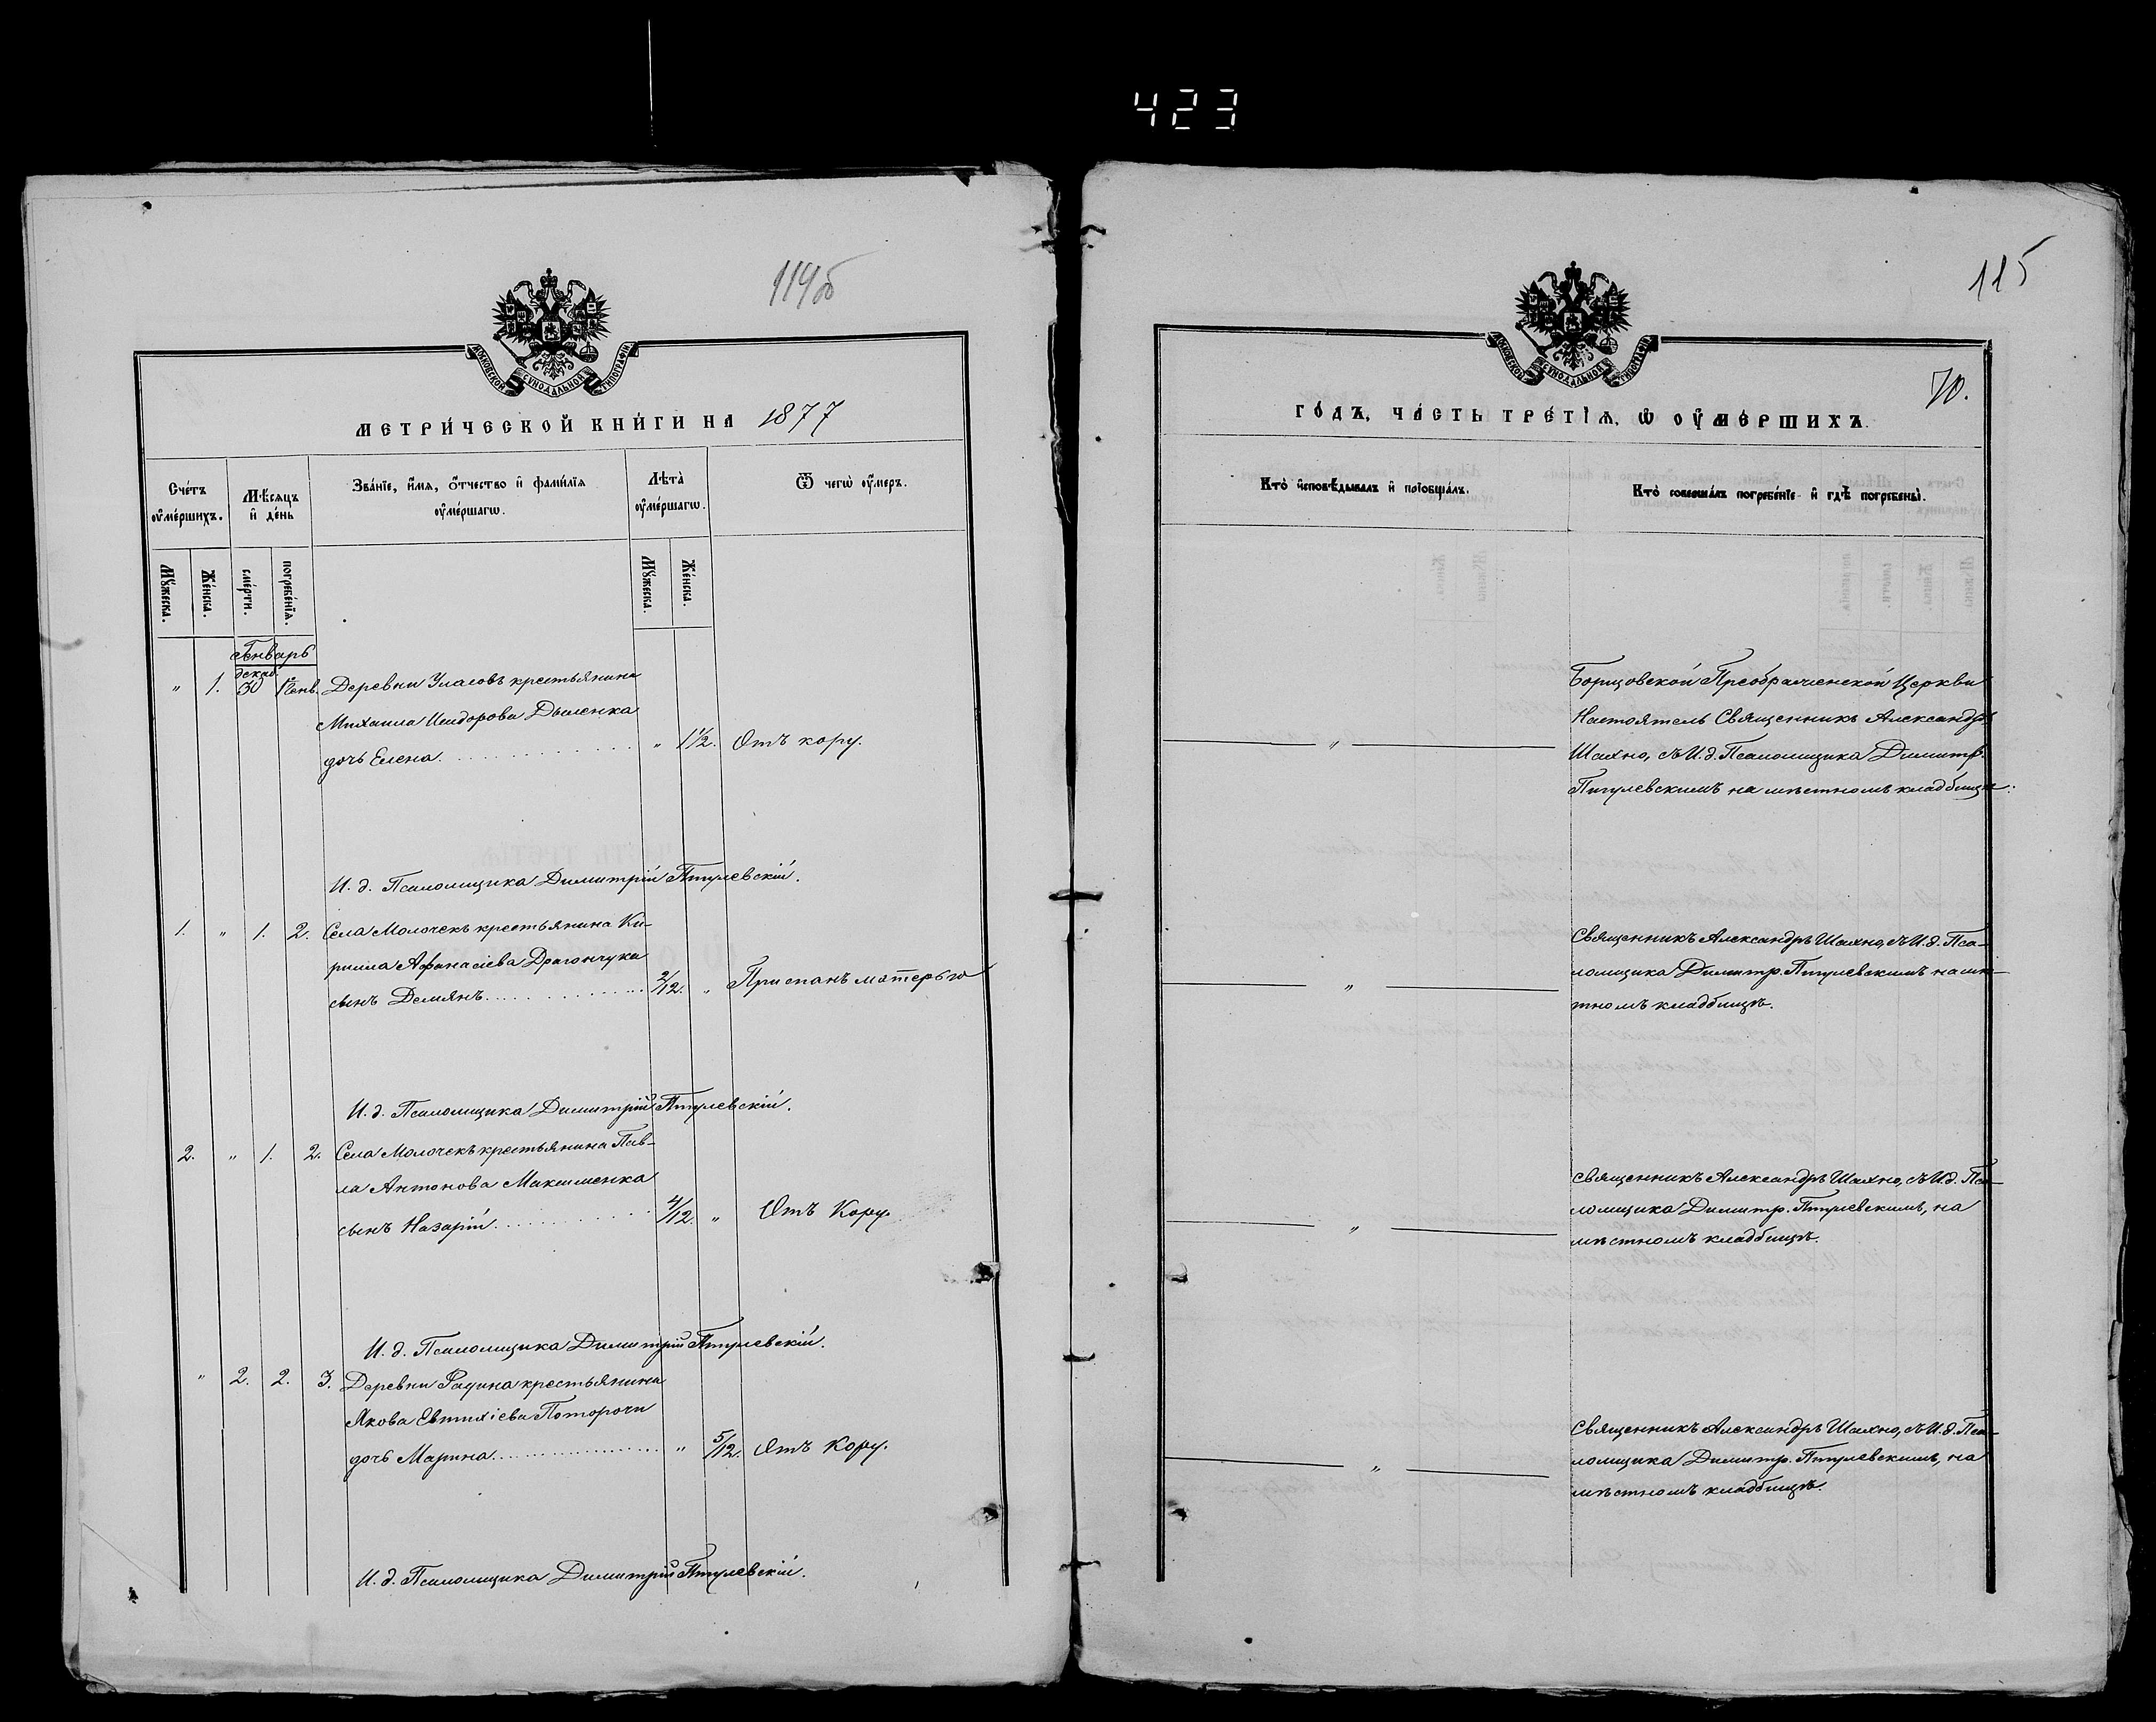 423
114об
МОСКОВСКОЙ СУНОДАЛЬНОЙ ТИПОГРАФІИ
МЕТРИ́ЧЕСКОЙ КНИ́ГИ НА 1877
Сче́тъ ᲂу҆ме́ршихъ.
Мѣ́сяцъ и҆ де́нь
Зва́нїе, и҆́мя, ѻ҆́тчество и҆ фами́лїя ᲂу҆ме́ршагѡ.
Лѣта̀ ᲂу҆ме́ршагѡ.
Ѿ чегѡ̀ ᲂу҆́меръ.
Мꙋ́жеска.
Же́нска.
сме́рти.
погребе́нїя.
Мꙋ́жеска.
Же́нска.
Генварь
декаб.
„ 1. 30 1 Генв. Деревни Уласовъ крестьянина
Михаила Исидорова
дочь Елена. „ 1½. Отъ кору.
И. д. Псаломщика Димитрій Пигулевскій.
1. „ 1. 2. Села Молочекъ крестьянина Ки-
рилла Афанасіева Драгончука
сынъ Демянъ. 2/12. „ Приспанъ матерью
И. д. Псаломщика Димитрій Пигулевскій.
2. „ 1. 2. Села Молочекъ крестьянина Пав-
ла Антонова Максименка
сынъ Назарій. 4/12. „ Отъ Кору.
И. д. Псаломщика Димитрій Пигулевскій.
„ 2. 2. 3. Деревни крестьянина
Якова Евтихіева Поторочи
дочь Марина. „ 5/12. Отъ Кору.
И. д. Псаломщика Димитрій Пигулевскій.
115
МОСКОВСКОЙ СУНОДАЛЬНОЙ ТИПОГРАФІИ
70.
ГО́ДЪ, ЧА́СТЬ ТРЕ́ТЇЯ, Ѡ҆ ᲂУ҆МЕ́РШИХЪ.
Кто̀ и҆сповѣ́дывалъ и҆ прїобща́лъ.
Кто̀ соверша́лъ погребе́нїе и҆ гдѣ̀ погребены̀.
Борщовской Преображенской Церкви
Настоятель Священникъ Александръ
„ Шахно, съ И. д. Псаломщика Димитр.
Пигулевскимъ на мѣстномъ кладбищѣ.
Священникъ Александръ Шахно, съ И. д. Пса-
„ ломщика Димитр. Пигулевскимъ на мѣс-
тномъ кладбищѣ.
Священникъ Александръ Шахно, съ И. д. Пса-
ломщика Димитр. Пигулевскимъ, на
„ мѣстномъ кладбищѣ.
Священникъ Александръ Шахно, съ И. д. Пса-
„ ломщика Димитр. Пигулевскимъ, на
мѣстномъ кладбищѣ.